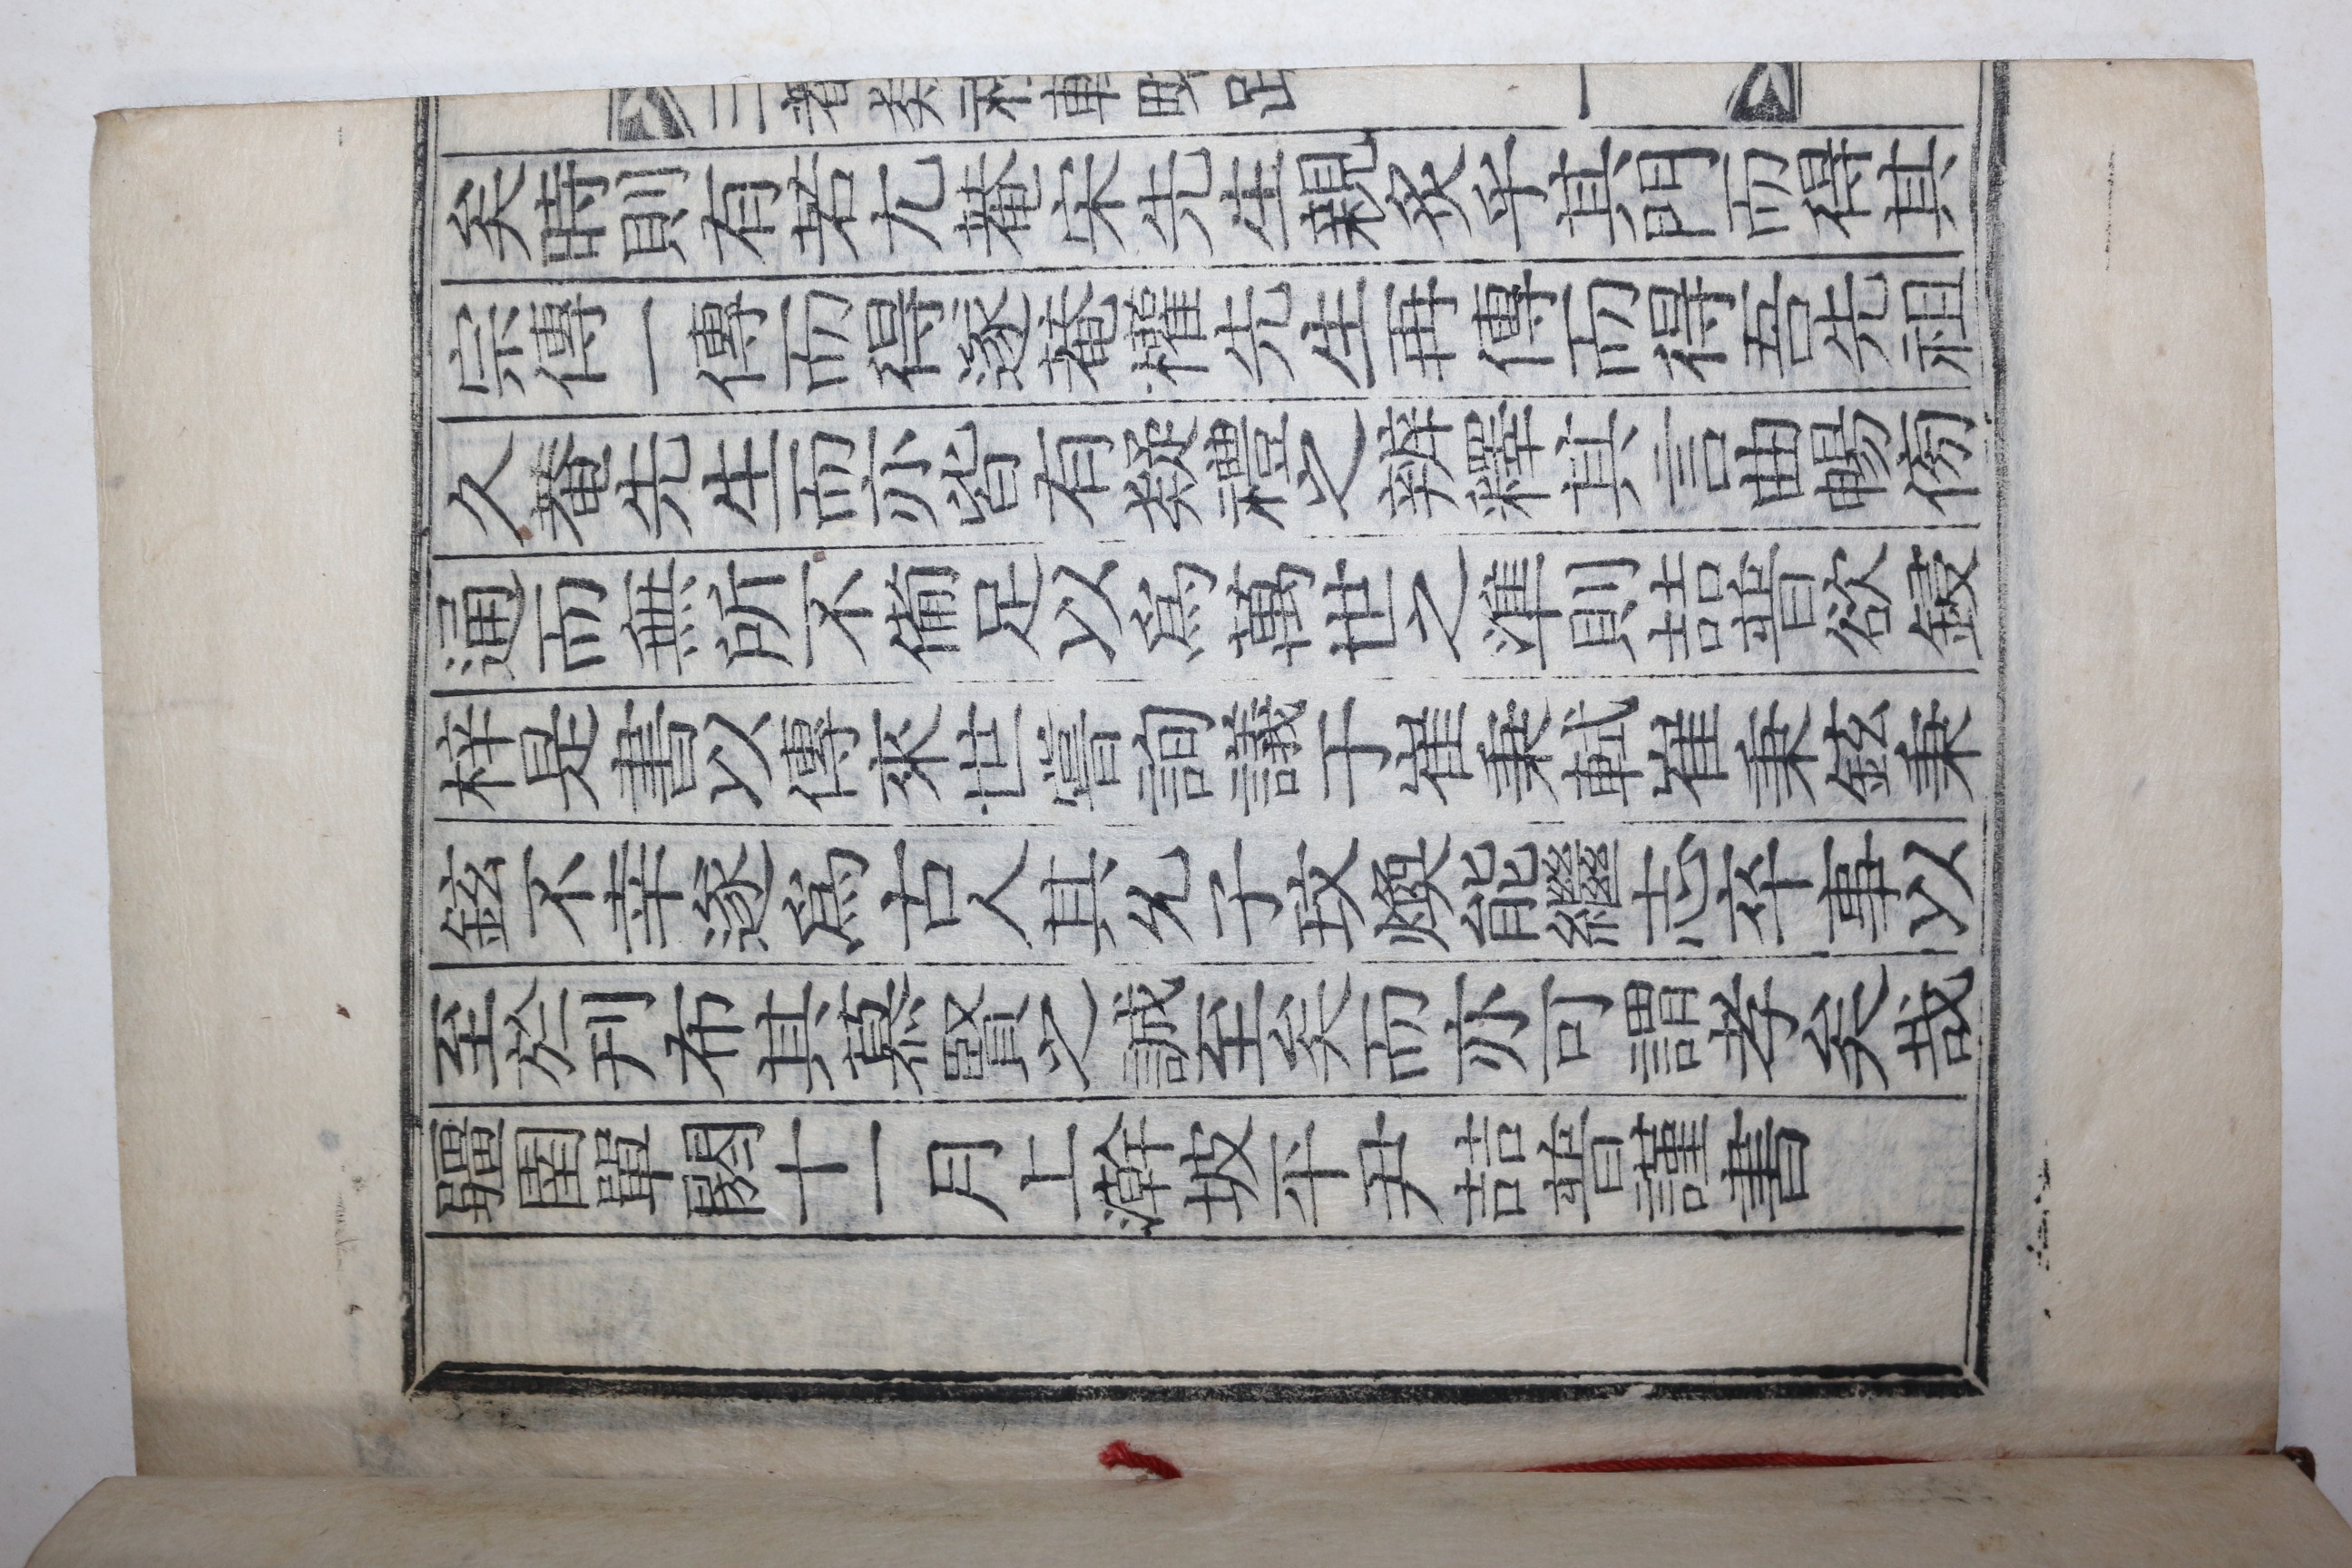 矣時則有若尤菴宋先生親炙乎其門而得其
宗傳一傳而得遂菴權先生再傳而得吾先祖
久菴先生而亦皆有疑禮之辨釋其言曲暢傍
通而無所不備足以爲萬世之準則喆普欲鋟
梓是書以傳來世嘗詢議于崔秉軾崔秉鉉秉
鉉不幸遂爲古人其允子玟煥能繼志卒事以
至於刊布其慕賢之誠至矣而亦可謂孝矣哉
疆圉單閼十一月上澣坡平尹喆普謹書